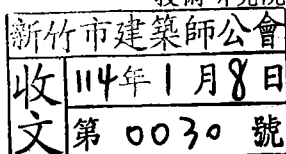 新竹市建築師公會
收文
114年1月8日
第 0030 號